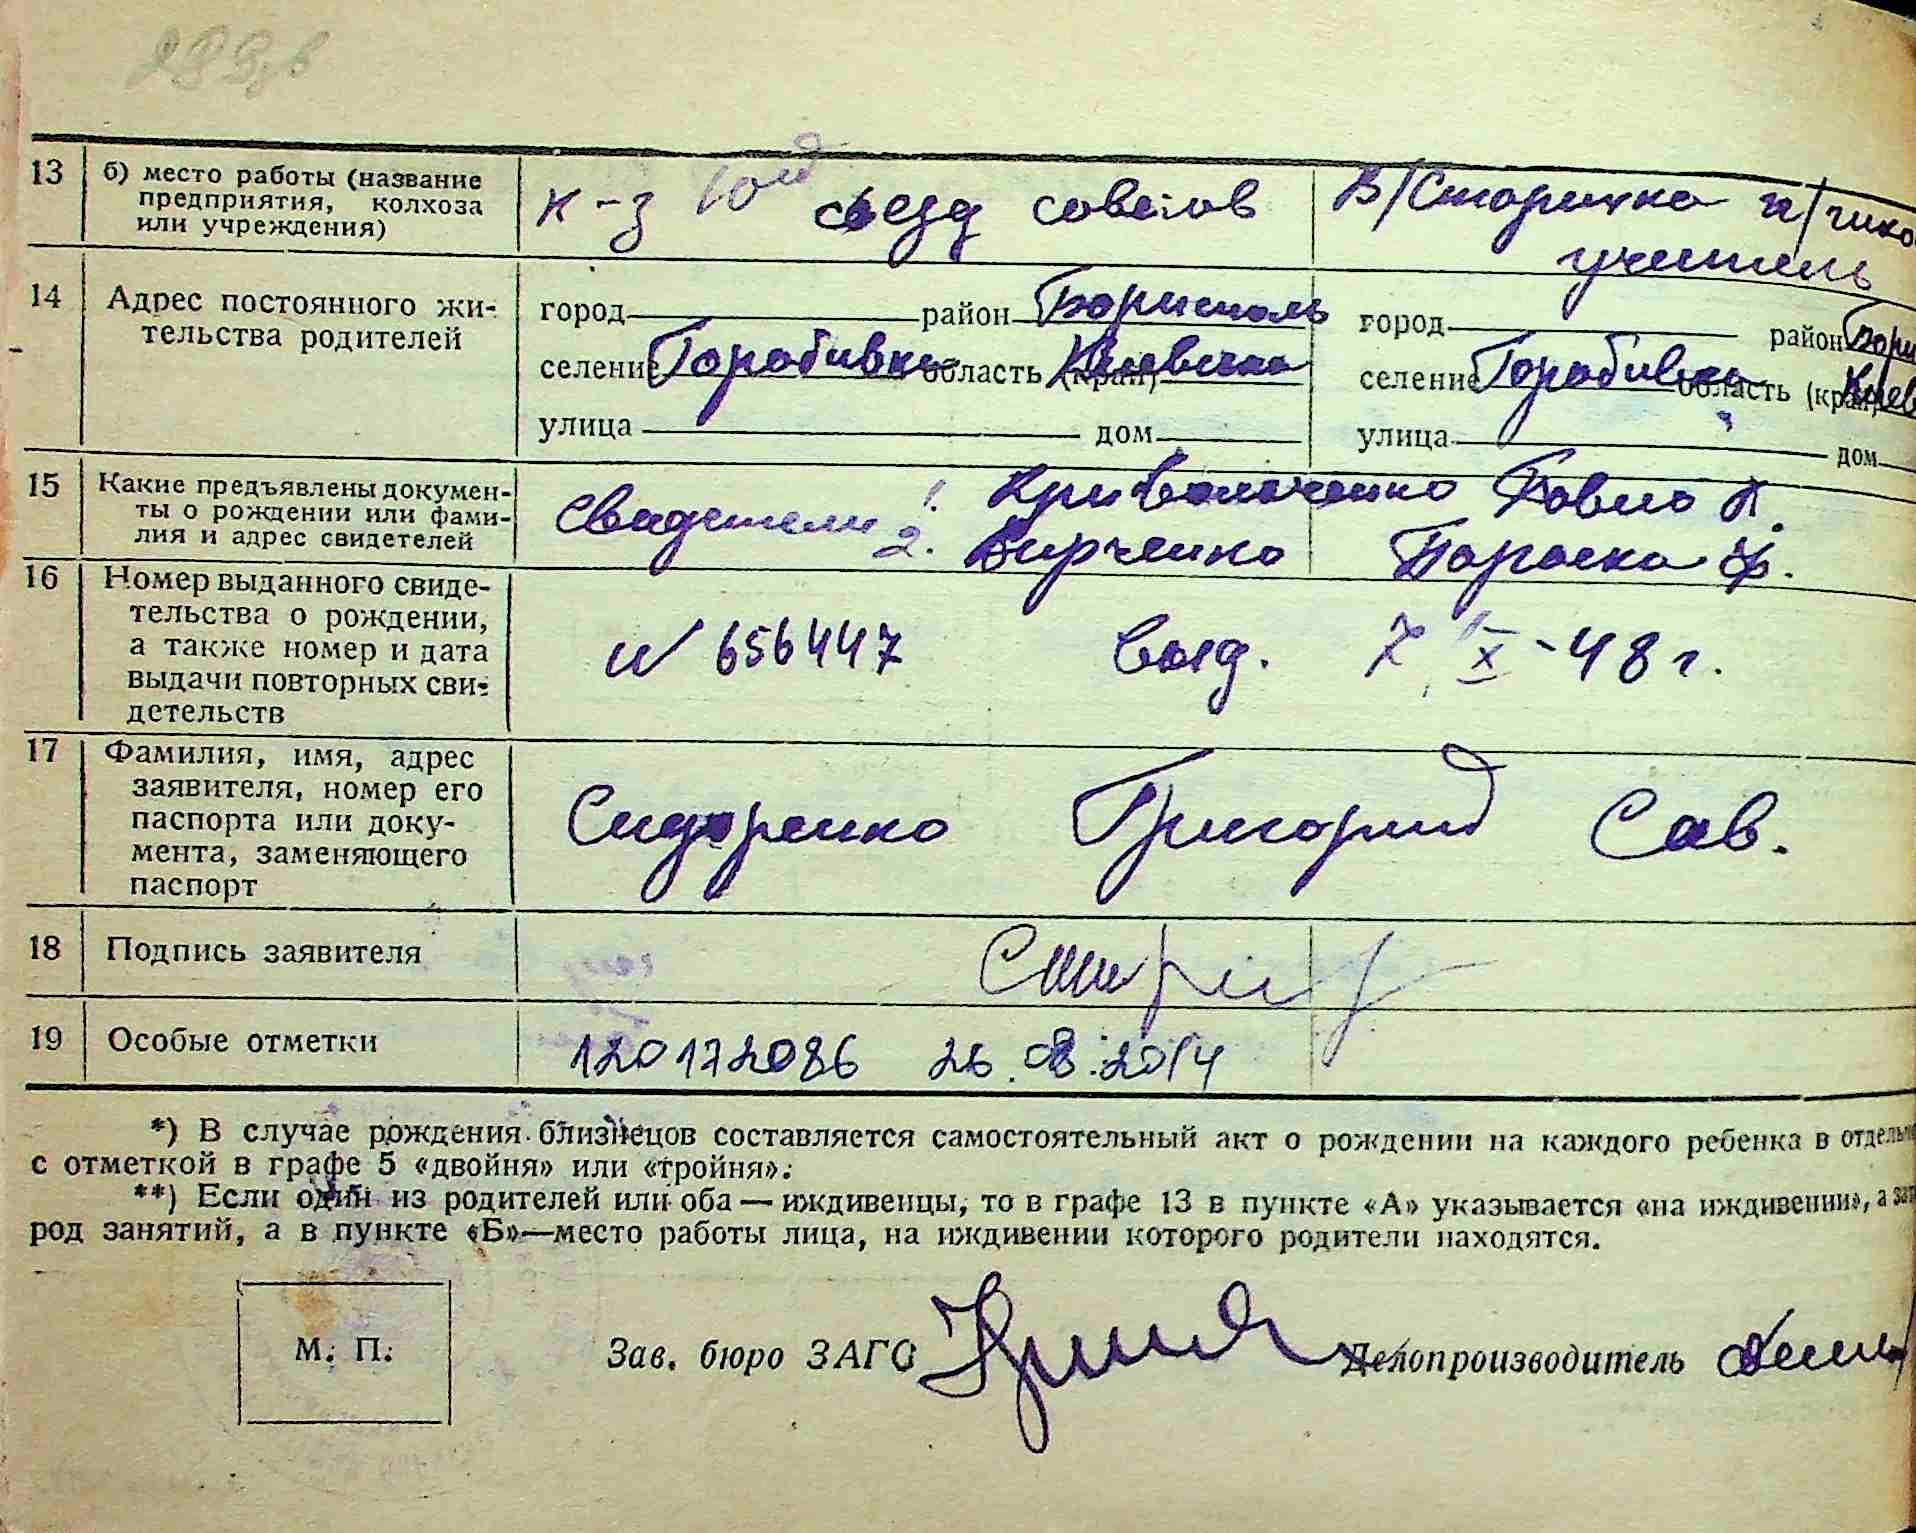 13 б) место работы (название предприятия, колхоза или учреждения) к-з 10ой съезд советов В/Старичка н/ учитель
14 Адрес постоянного жи-
тельства родителей
город район Бориспаль город район Бори
селение Горобивка область (край) Киевская селение Горобивка область (край) Киев
улица дом улица дом
15 Какие предъявлены докумен-
ты о рождении или фами-
лия и адрес свидетелей
Свидетели 1. Павло П.
2. Вирченко Параска Ф.
16 Номер выданного свиде-
тельства о рождении,
а также номер и дата
выдачи повторных сви-
детельств
N 656447 выд. 7 X - 48 г.
17 Фамилия, имя, адрес
заявителя, номер его
паспорта или доку-
мента, заменяющего
паспорт
Сидоренко Григорий Сав.
18 Подпись заявителя
19 Особые отметки 120172086 26.08.2014
*) В случае рождения близнецов составляется самостоятельный акт о рождении на каждого ребенка в отдельн
с отметкой в графе 5 «двойня» или «тройня».
**) Если один из родителей или оба — иждивенцы, то в графе 13 в пункте «А» указывается «на иждивении», а зат
род занятий, а в пункте «Б»—место работы лица, на иждивении которого родители находятся.
М. П. Зав. бюро ЗАГС Делопроизводитель